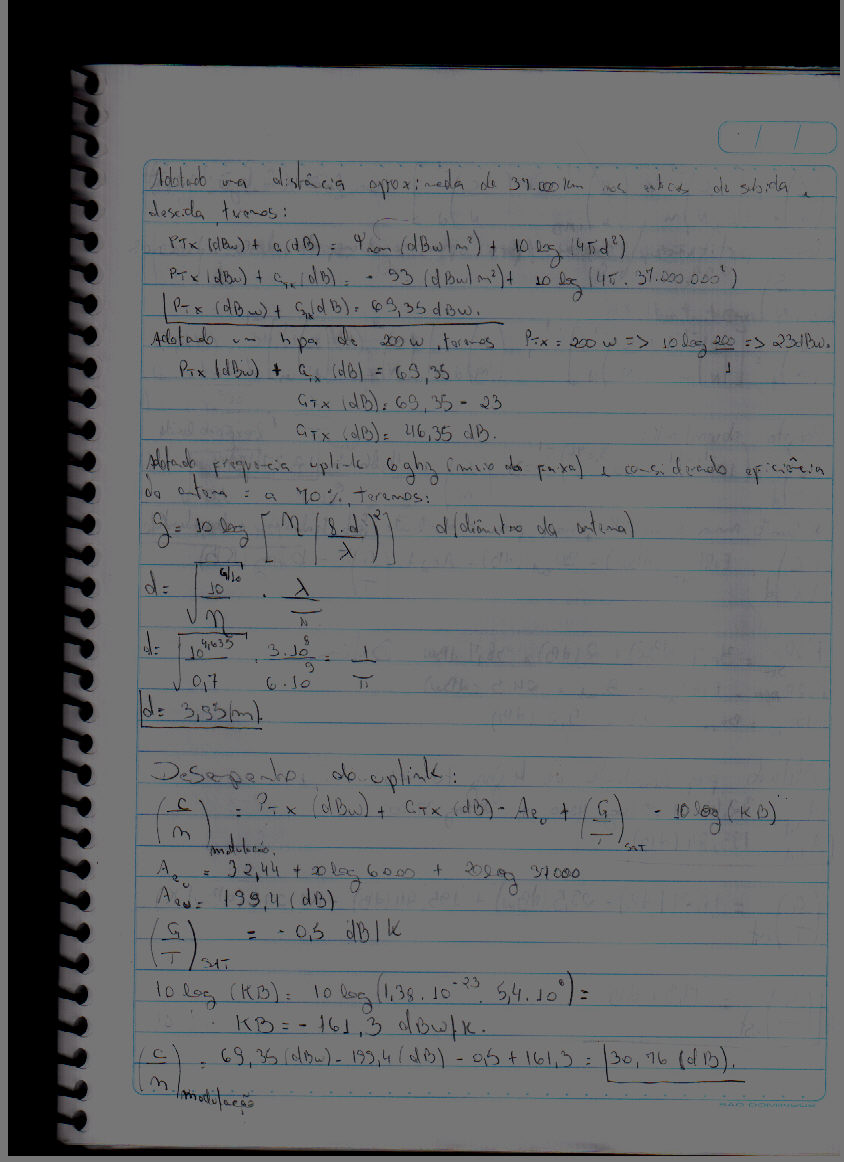 / /
Adotado uma distância aproximada de 37.000 km nos enlaces de subida e
descida, teremos:
PTX (dBw) + G (dB) = Ψnom (dBw/m²) + 10 log (4πd²)
PTX (dBw) + GTX (dB) = - 93 (dBw/m²) + 10 log (4π . 37.000.000²)
PTX (dBw) + GTX (dB) = 69,35 dBw.
Adotado um hpa de 200 w, teremos PTX = 200 w => 10 log 200/1 => 23 dBw.
PTX (dBw) + GTX (dB) = 69,35
GTX (dB) = 69,35 - 23
GTX (dB) = 46,35 dB.
Adotado frequência uplink 6 ghz (início da faixa) e considerado eficiência
da antena = a 70%, teremos:
g = 10 log [ η ( d / λ )² ] d (diâmetro da antena)
d = √(10^(G/10) / η) . λ / π
d = √(10^4,635 / 0,7) . 3.10^8 / 6.10^9 = 1 / π
d = 3,95 (m).
Desempenho do uplink:
(C/n) modulação = PTX (dBw) + GTX (dB) - Aeu + (G/T) SAT - 10 log (KB)
Aeu = 32,44 + 20 log 6000 + 20 log 37000
Aeu = 199,4 (dB)
(G/T) SAT = - 0,5 dB/K
10 log (KB) = 10 log (1,38 . 10^-23 . 5,4 . 10^6) =
KB = - 161,3 dBw/K.
(C/n) modulação = 69,35 (dBw) - 199,4 (dB) - 0,5 + 161,3 = 30,76 (dB).
SÃO DOMINGOS